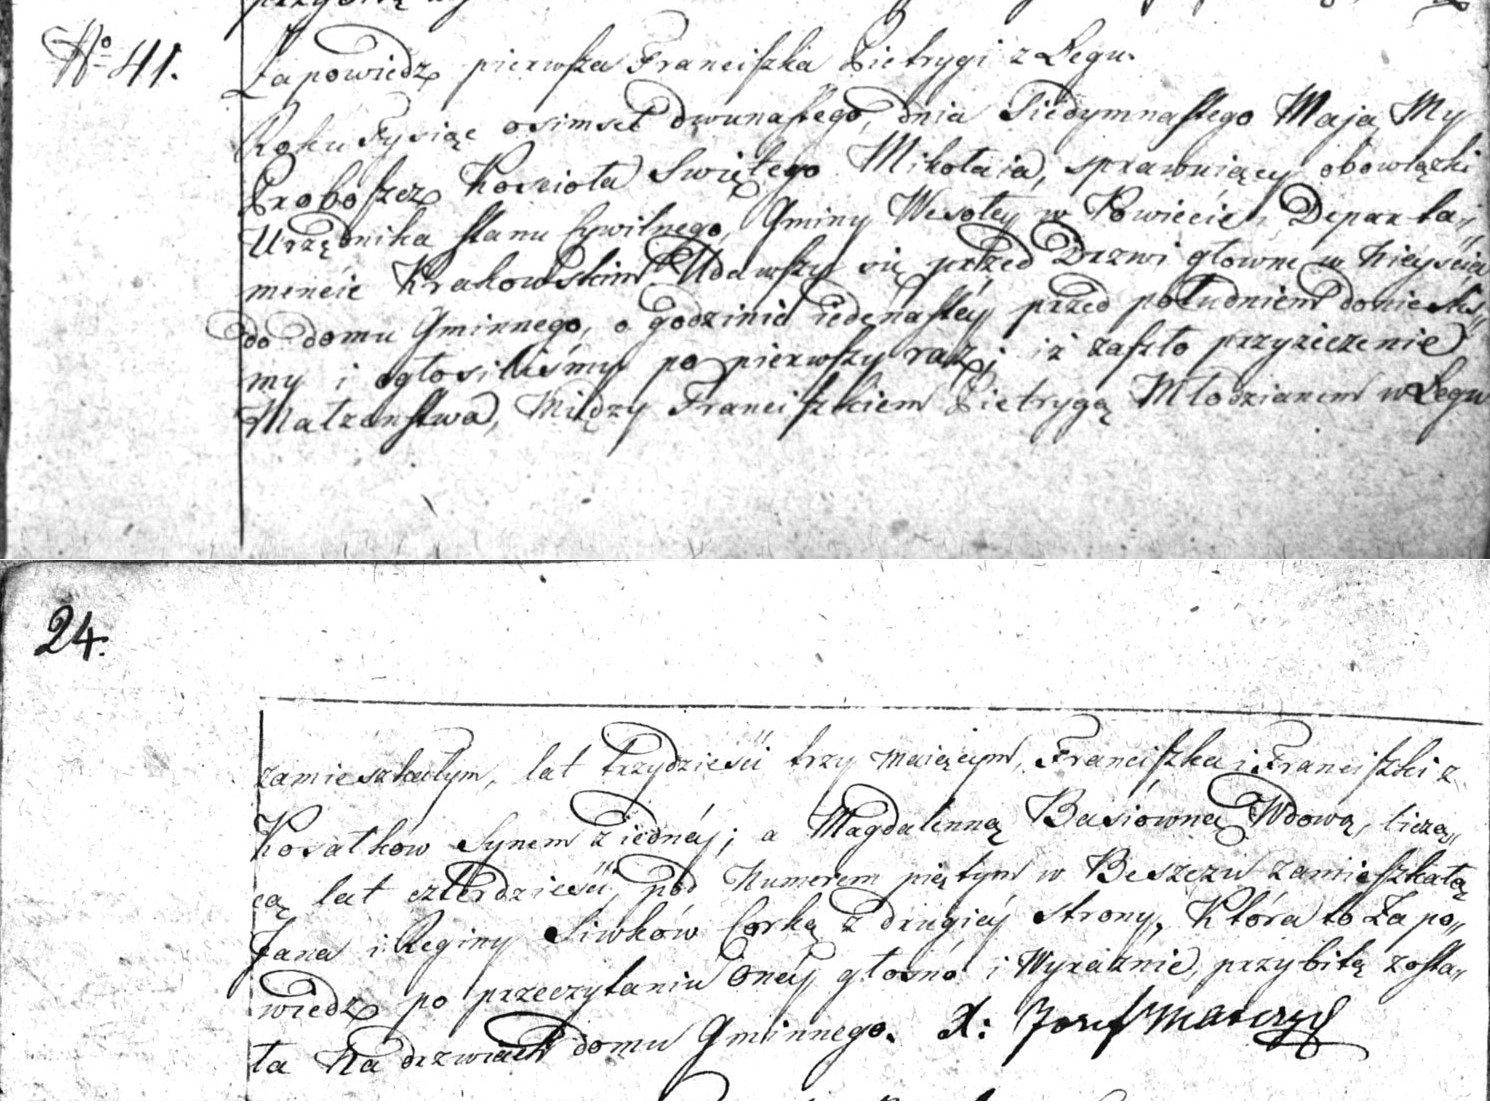 No 41.
Zapowiedz pierwsza Franciszka Pietrygi z Łęgu.
Roku Tysiąc osimset dwunastego, dnia Siedymnastego Maja, My
Proboszcz Kościoła Swiętego Mikołaia, sprawuiący obowiązki
Urzędnika stanu Cywilnego, Gminy Wesołey w Powiecie i Departa„
mencie Krakowskim Udawszy się przed Drzwi głowne w Nieyścia
do domu Gminnego, o godzinie iedenastey przed południem donieśli„
my i ogłosiliśmy po pierwszy raz, iż zaszło przyrzeczenie
Małzenstwa, Między Franciszkiem Pietrygą Młodzianem w Łęgu
24.
zamieszkałym, lat trzydzieści trzy maiącym, Franciszka i Franciszki z
Kosałkow Synem z iednéy; a Magdalenną Basiowną Wdową, licza„
cą lat czterdzieści, pod Numerem piętym w Beszczu zamieszkałą
Jana i Reginy Siwków Corką z drugiéy strony, Która to Zapo„
wiedz po przeczytaniu Oney głosno i Wyraznie, przybitą zosta„
ła na drzwiach domu Gminnego. X: Jozef Matczyc